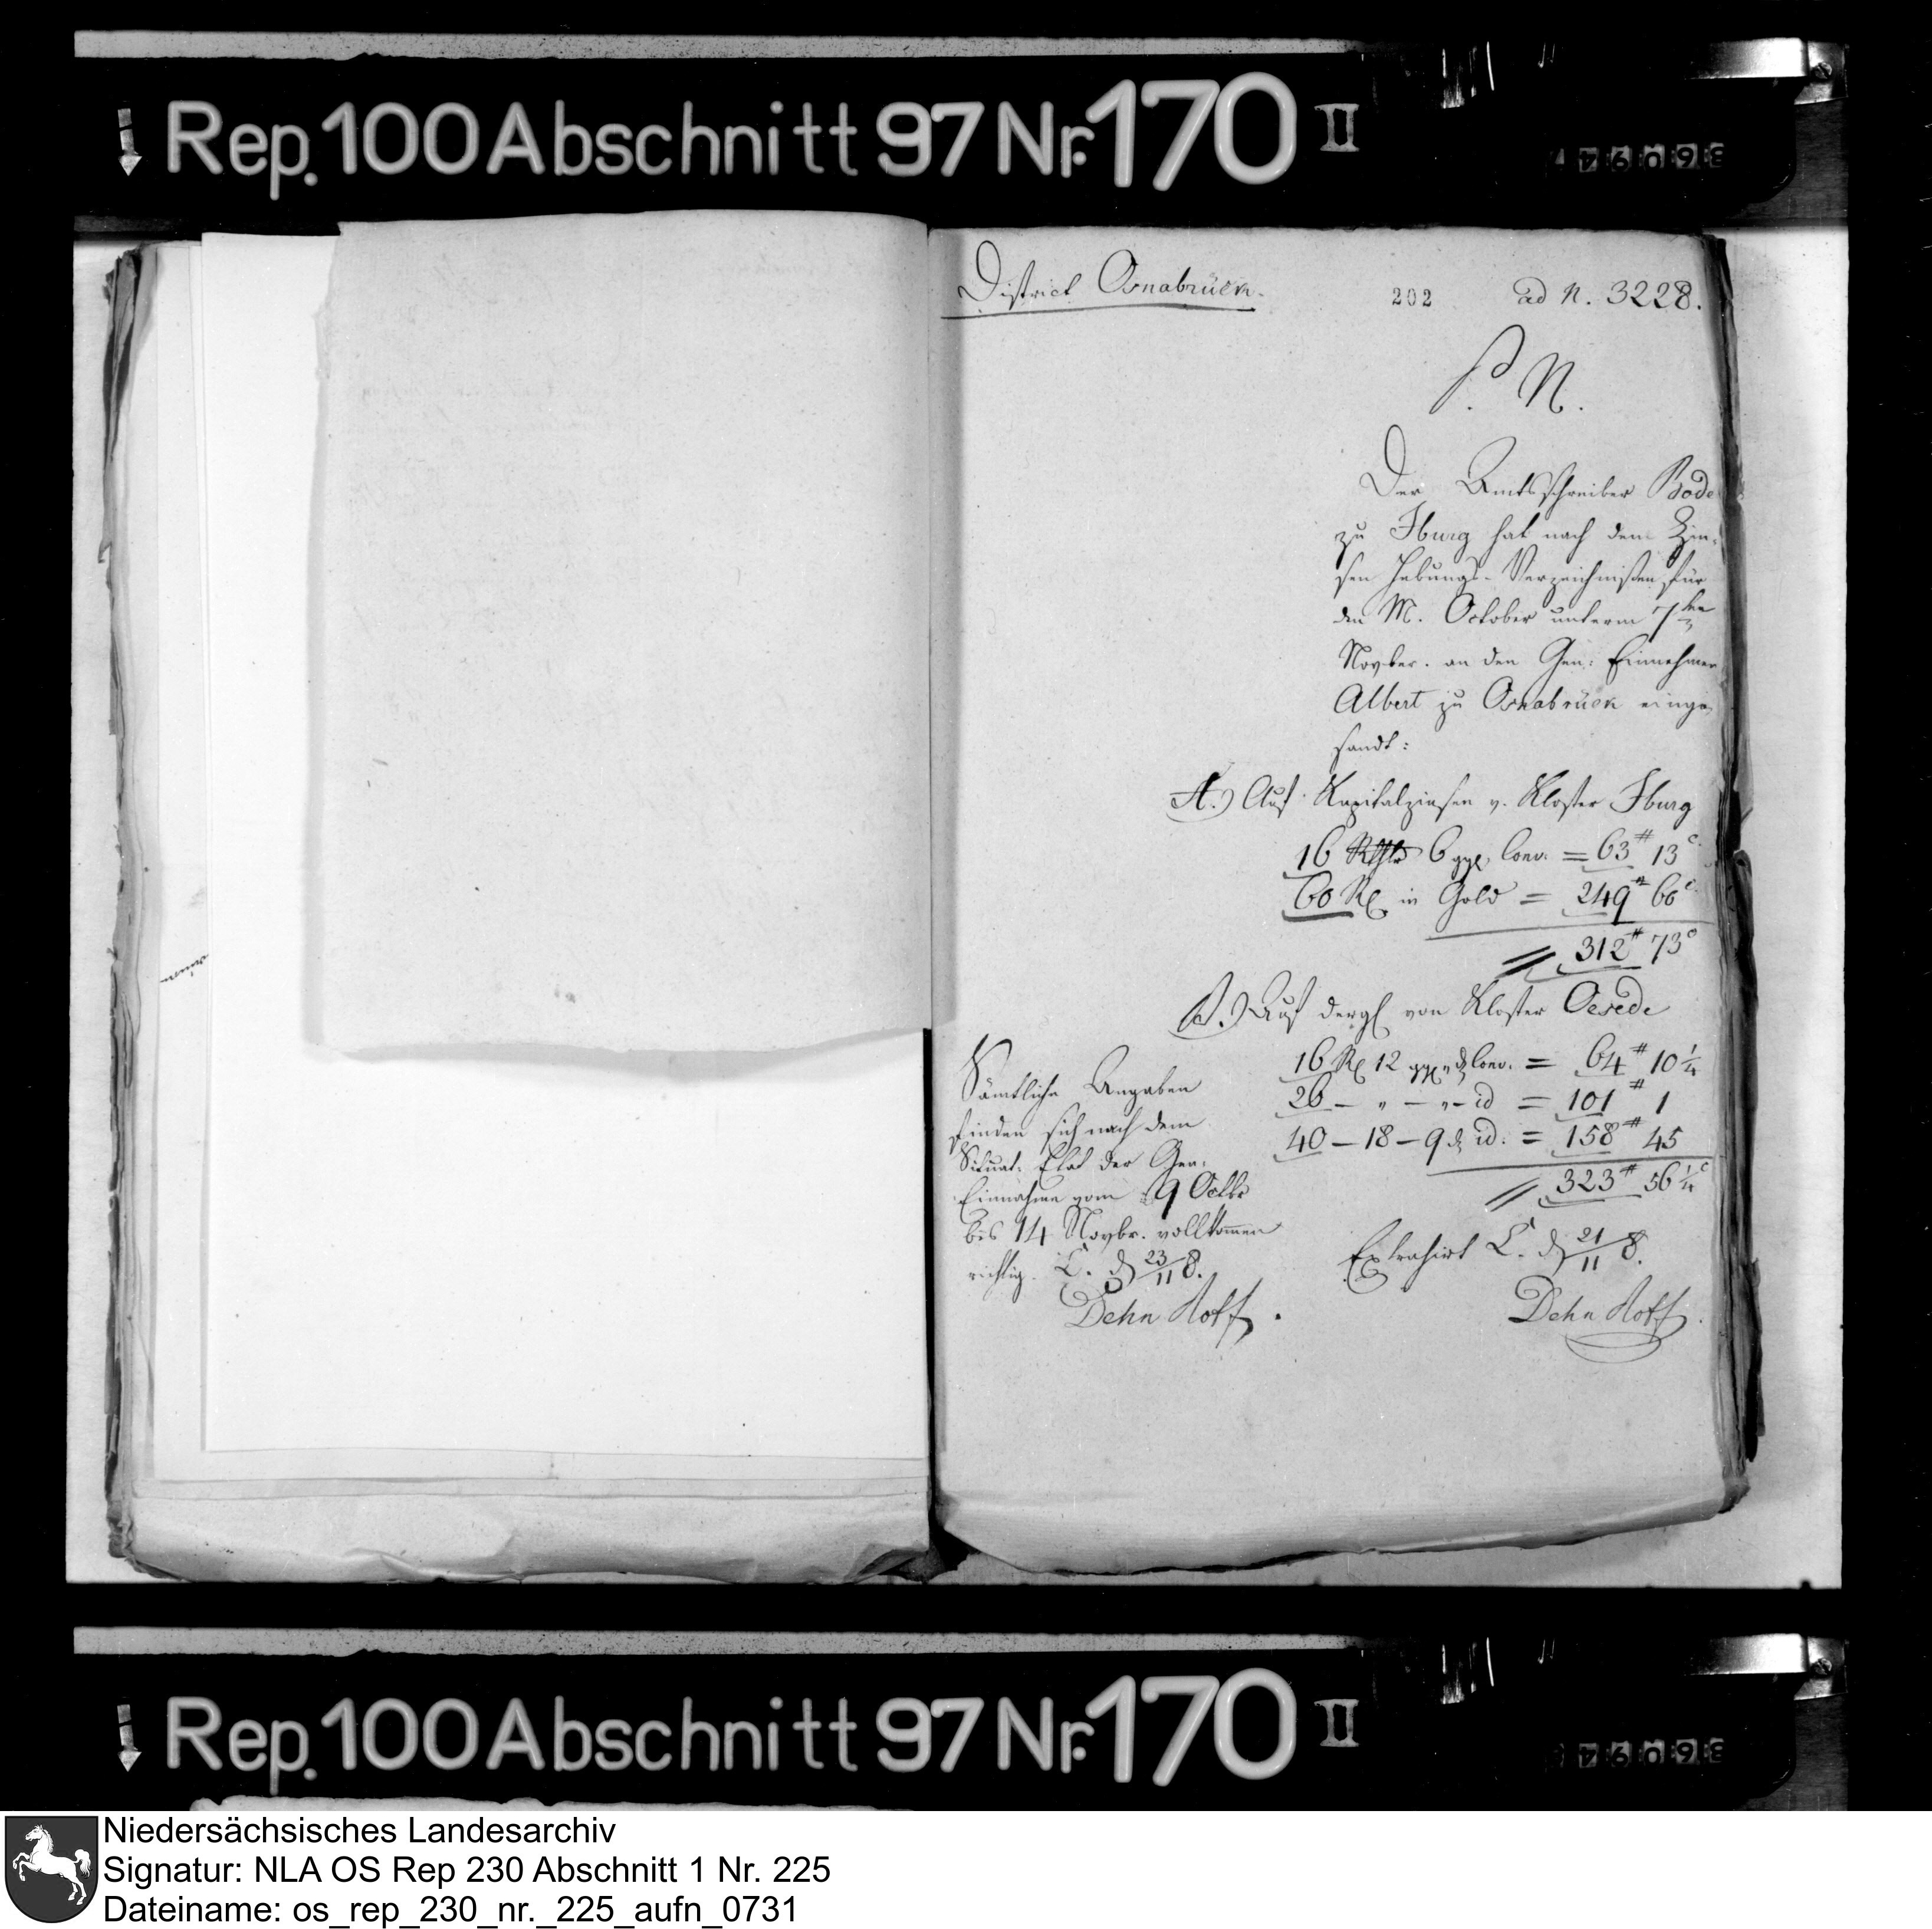 Rep. 100 Abschnitt 97 Nr. 170 II
District Osnabrück.
202
ad N. 3228.
P. N.
Der Amtsschreiber Bode
zu Iburg hat nach dem Zin-
sen Hebungs-Verzeichnißen für
den M. October unterm 7ten
Novber. an den Gen: Einnehmer
Albert zu Osnabrück einge-
sandt:
A.) Auf Kapitalzinsen v. Kloster Iburg
16 Rthlr 6 ggr Conv. = 63 # 13 c
60 Rl in Gold = 249 # 60 c
= 312 # 73 c
B.) Auf dergl von Kloster Oesede
16 Rl 12 ggr „ d Conv. = 64 # 10 1/4
26 — „ — „ — id = 101 # 1
40 — 18 — 9 d id: = 158 # 45
= 323 # 56 1/4 c
Extrahirt C. d 21/11 8.
Dehn Hoff.
Sämtliche Angaben
finden sich nach dem
Situat: Etat der Gen:
Einnahme vom 9 Octbr
bis 14 Novbr. vollkommen
richtig. C. d 23/11 8.
Dehn Hoff.
Rep. 100 Abschnitt 97 Nr. 170 II
Niedersächsisches Landesarchiv
Signatur: NLA OS Rep 230 Abschnitt 1 Nr. 225
Dateiname: os_rep_230_nr._225_aufn_0731